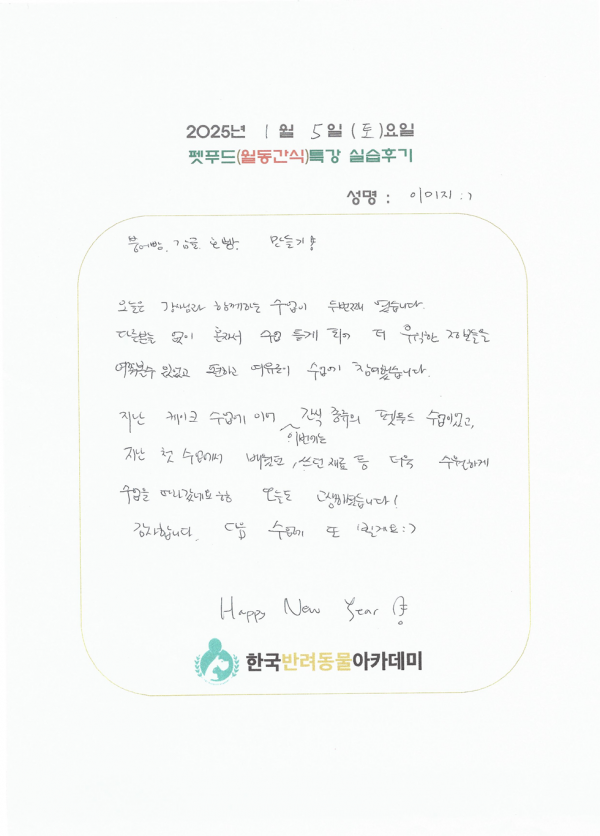 2025년 1월 5일 (토)요일
펫푸드(월동간식)특강 실습후기
성명 : 이미지 :)
붕어빵, 감귤, 호빵, 만들기
오늘은 강사님과 함께하는 수업이 두번째 였습니다.
다른분들 없이 혼자서 수업 듣게 되어 더 유익한 정보들을
여쭤볼수 있었고 편하고 여유로이 수업에 참여했습니다.
지난 케이크 수업에 이어 이번에는 간식 종류의 펫푸드 수업이었고,
지난 첫 수업에서 배웠던, 쓰던 재료 등 더욱 수월하게
수업을 따라갔네요 오늘도 고생하셨습니다!
감사합니다. 다음 수업에 또 뵐게요 :)
Happy New Year
한국반려동물아카데미